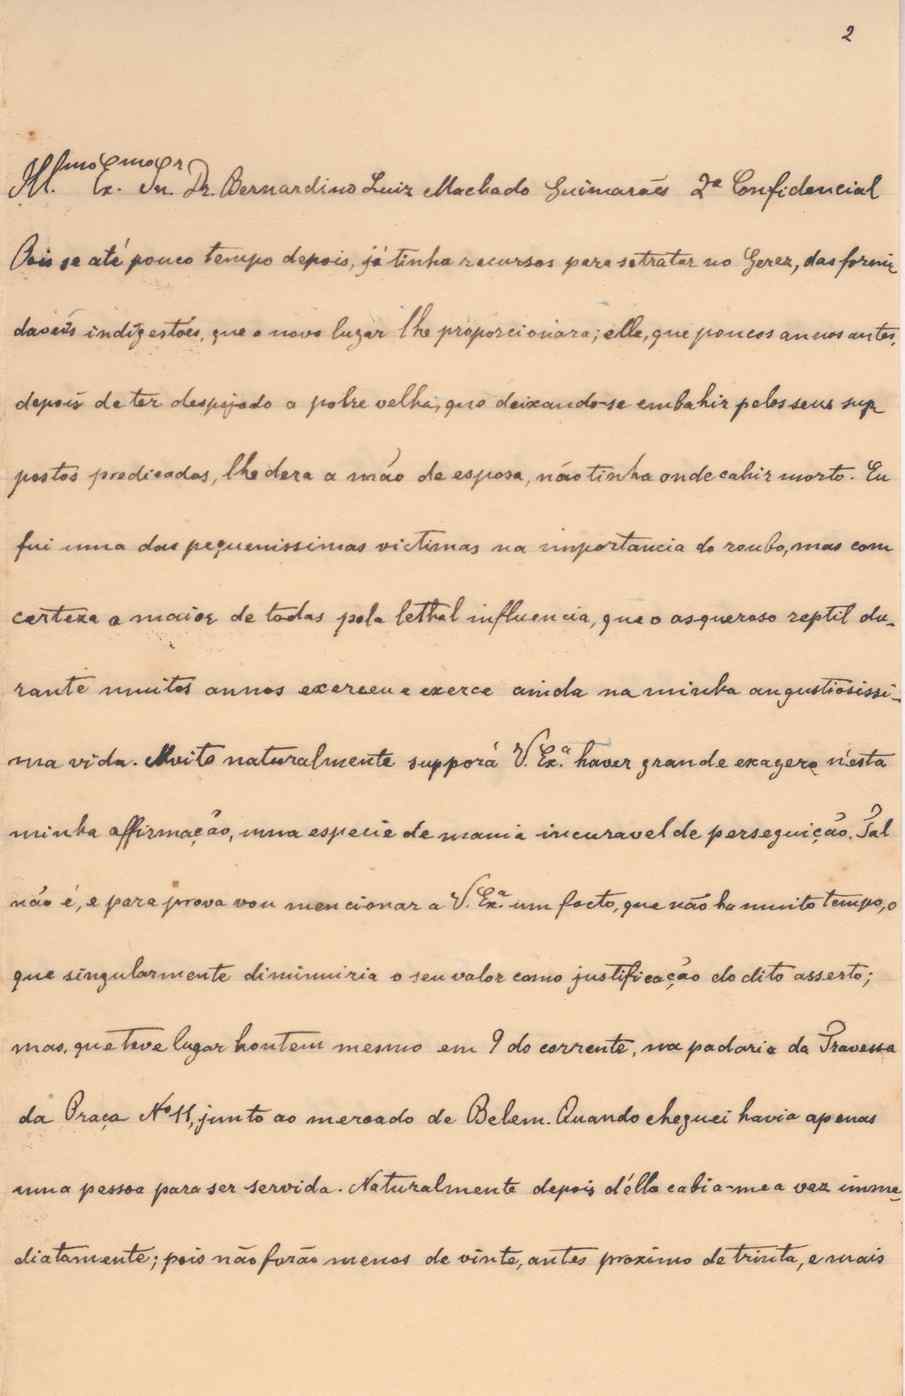 2
Ill.mo Ex.mo Sr. Dr. Bernardino Luiz Machado Guimarães 2ª Confidencial
Pois se até pouco tempo depois, já tinha recursos para se tratar no Gerez, das formi-
daveis indigestões, que o novo lugar lhe proporcionara; elle, que poucos annos antes,
depois de ter despejado a pobre velha, que deixando-se embahir pelos seus sup-
postos predicados, lhe dera a mão de esposa, não tinha onde cahir morto. Eu
fui uma das pequenissimas victimas na importancia do roubo, mas com
certeza a maior de todas pela lethal influencia, que o asqueroso reptil du-
rante muitos annos exerceu e exerce ainda na minha angustiosissi-
ma vida. Muito naturalmente supporá V. Ex.ª haver grande exagero n'ésta
minha affirmação, uma especie de mania incuravel de perseguição. Tal
não é, e para prova vou mencionar a V. Ex.ª um facto, que não ha muito tempo, o
que singularmente diminuiria o seu valor como justificação do dito asserto;
mas, que teve lugar hontem mesmo em 9 do corrente, na padaria da Travessa
da Praça Nº 11, junto ao mercado de Belem. Quando cheguei havia apenas
uma pessoa para ser servida. Naturalmente depois d'élla cabia-me a vez imme-
diatamente; pois não forão menos de vinte, antes proximo de trinta, e mais